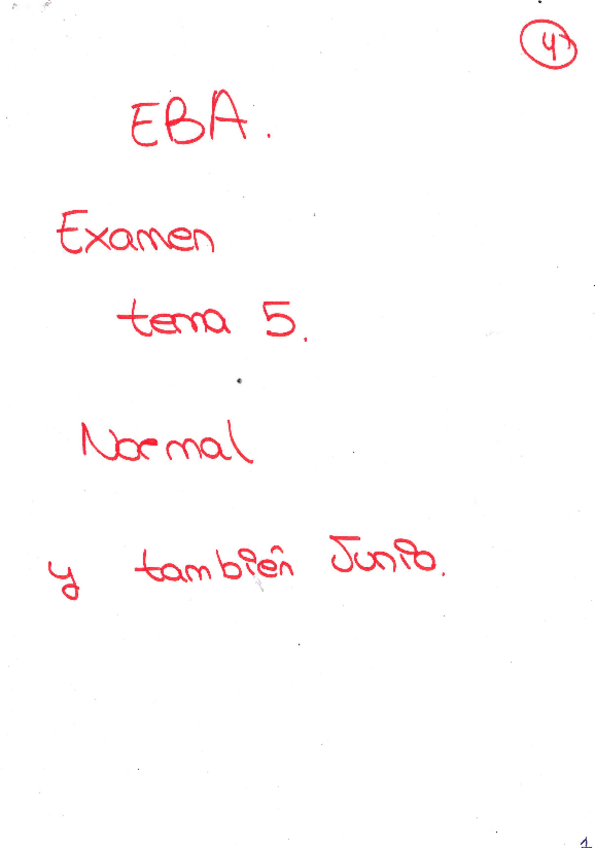 4
EBA.
Examen
tema 5.
Normal
y también Junio.
1